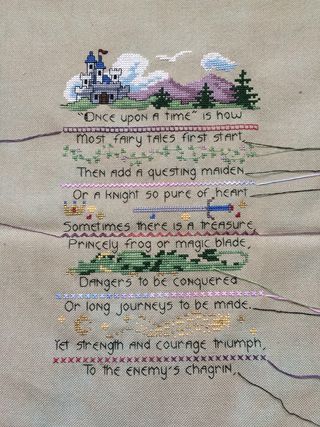 "Once upon a time" is how
Most fairy tales first start,
Then add a questing maiden
Or a knight so pure of heart.
Sometimes there is a treasure,
Princely frog or magic blade,
Dangers to be conquered
Or long journeys to be made.
Yet strength and courage triumph,
To the enemy's chagrin,